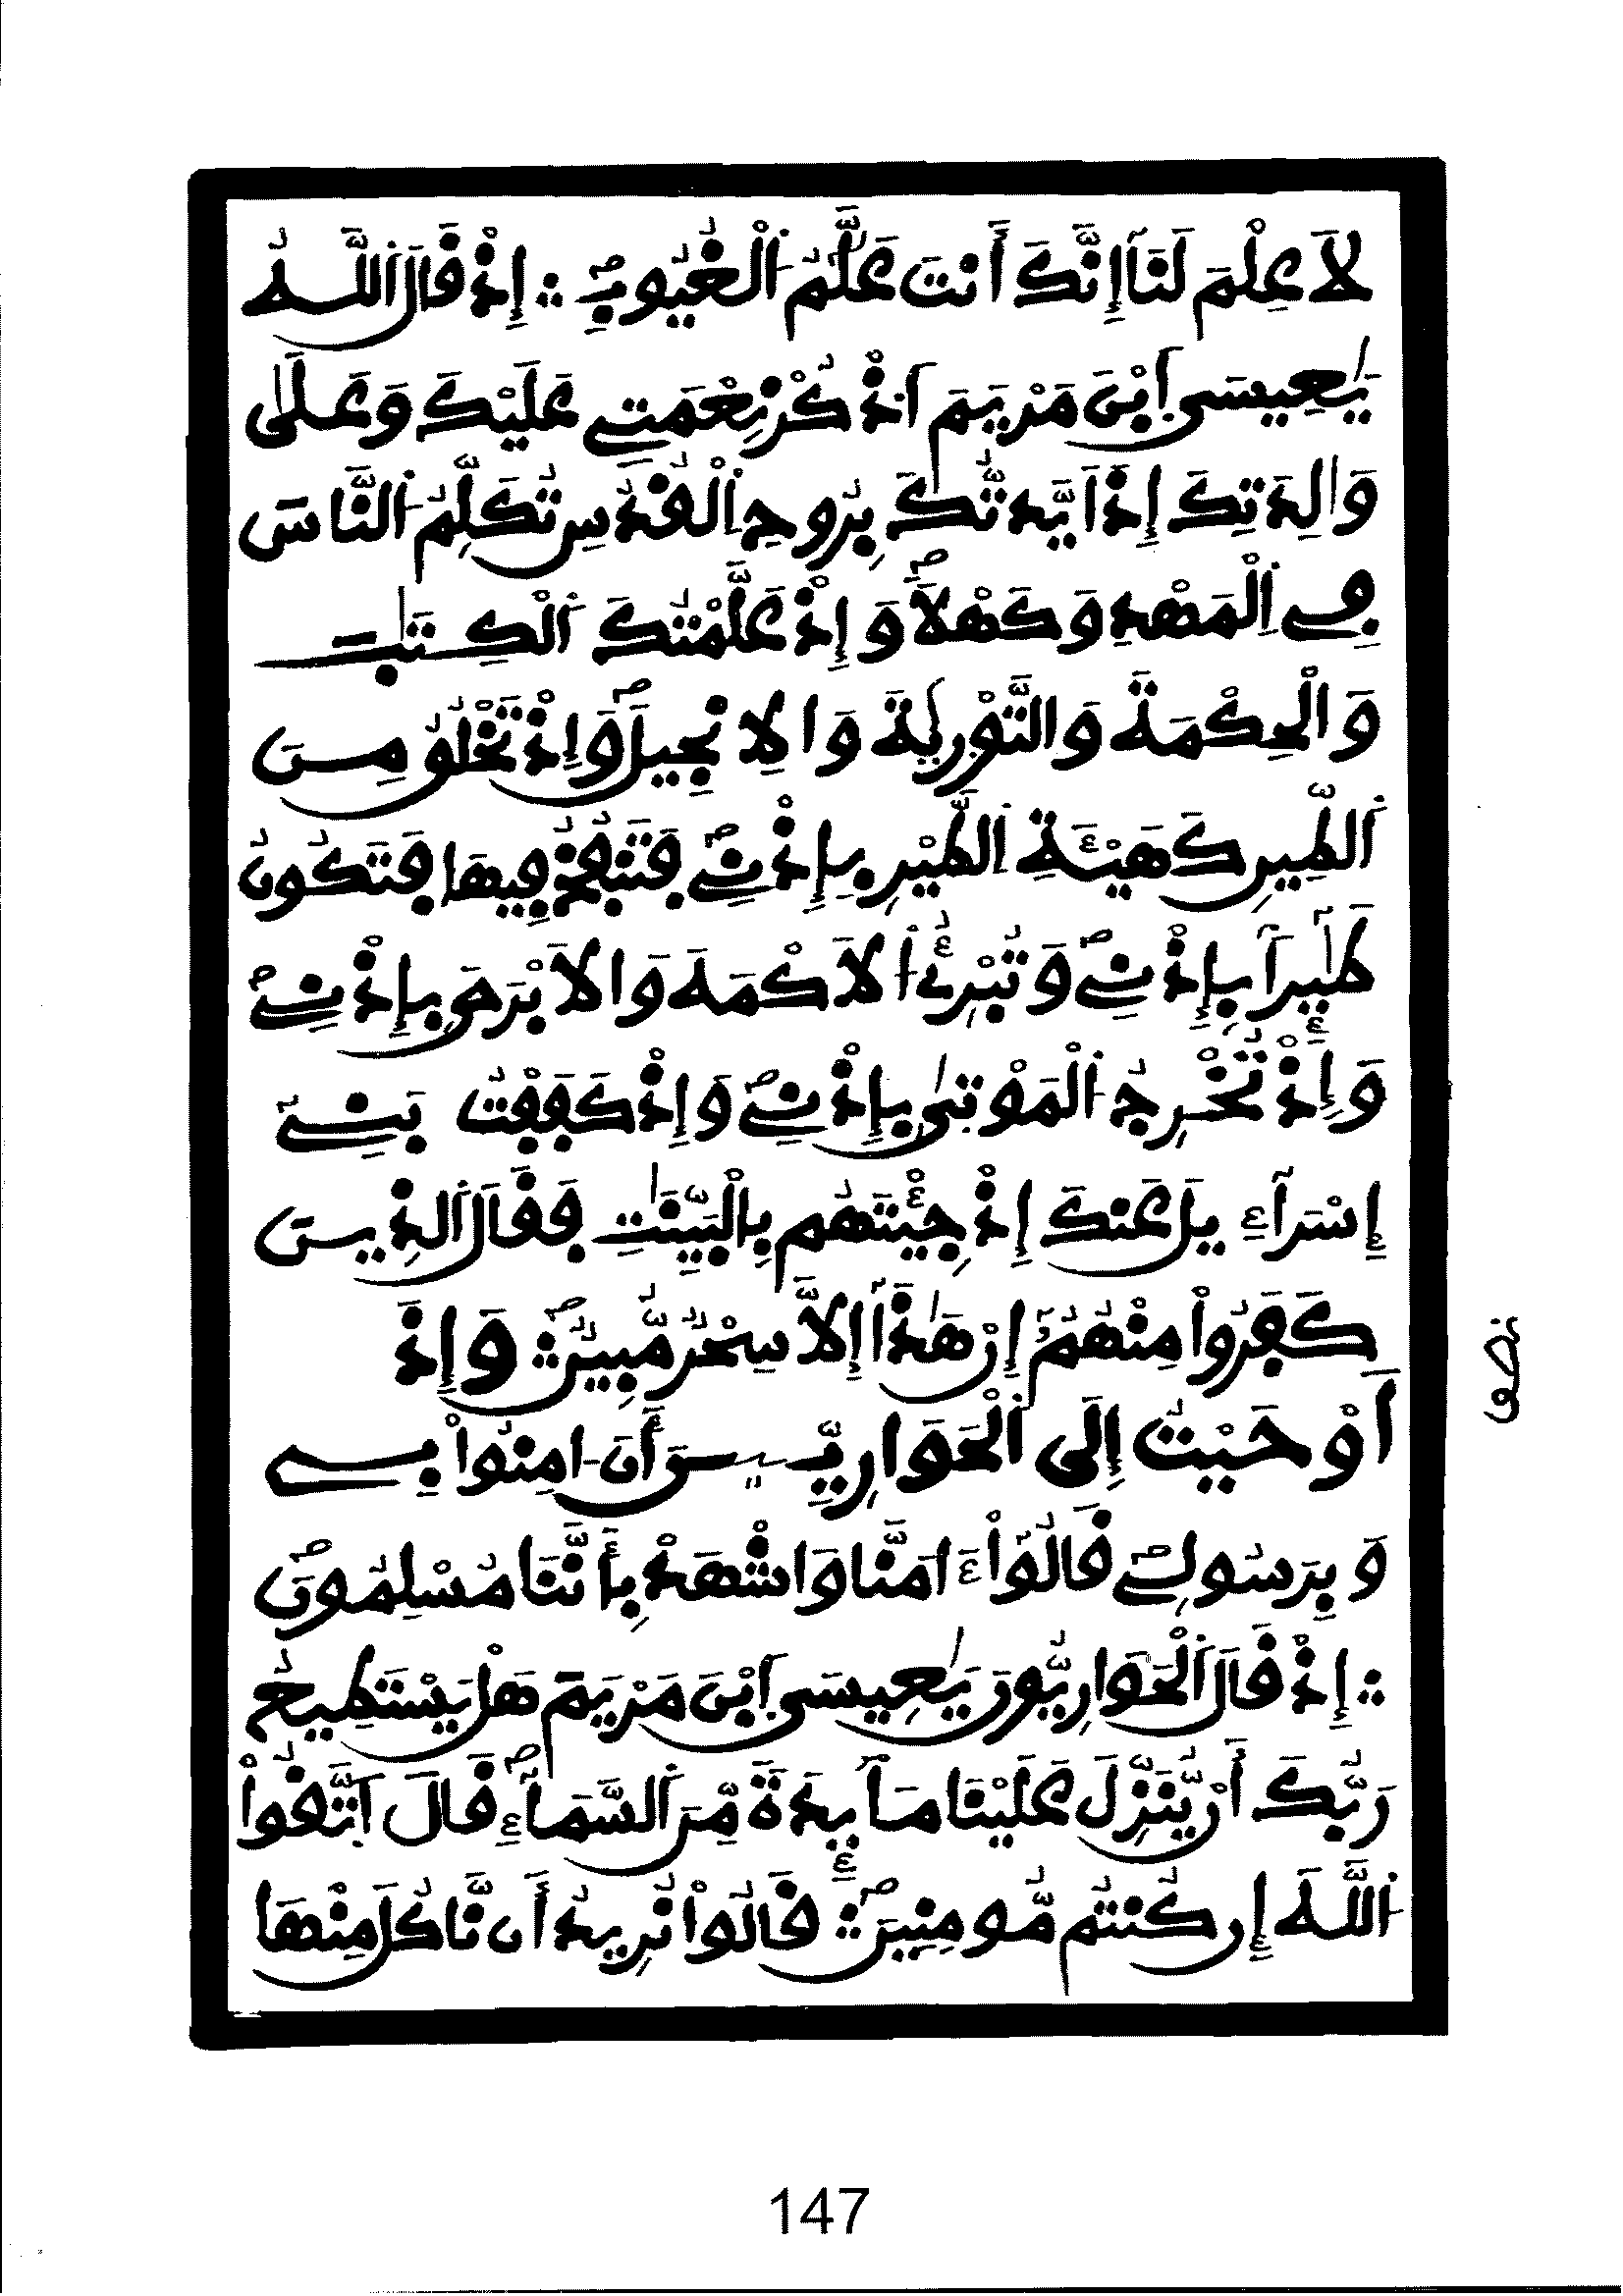 لَا عِلْمَ لَنَا إِنَّكَ أَنتَ عَلَّٰمُ اُ۬لْغُيُوبِۖ ۞ إِذْ قَالَ اَ۬للَّهُ
يَٰعِيسَى اَ۪بْنَ مَرْيَمَ اَ۟ذْكُرْ نِعْمَتِے عَلَيْكَ وَعَلَىٰ
وَٰلِدَتِكَ إِذَ اَيَّدتُّكَ بِرُوحِ اِ۬لْقُدُسِ تُكَلِّمُ اُ۬لنَّاسَ
فِے اِ۬لْمَهْدِ وَكَهْلاٗۖ وَإِذْ عَلَّمْتُكَ اَ۬لْكِتَٰبَ
وَالْحِكْمَةَ وَالتَّوْرَيٰةَ وَالِانجِيلَۖ وَإِذْ تَخْلُقُ مِنَ
اَ۬لطِّينِ كَهَيْـَٔةِ اِ۬لطَّيْرِ بِإِذْنِےۖ فَتَنفُخُ فِيهَا فَتَكُونُ
طَٰٓئِراَۢ بِإِذْنِےۖ وَتُبْرِۓُ اُ۬لَاكْمَهَ وَالَابْرَصَ بِإِذْنِےۖ
وَإِذْ تُخْرِجُ اُ۬لْمَوْتَىٰ بِإِذْنِےۖ وَإِذْ كَفَفْتُ بَنِےٓ
إِسْرَآءِيلَ عَنكَ إِذْ جِئْتَهُم بِالْبَيِّنَٰتِ فَقَالَ اَ۬لذِينَ
كَفَرُواْ مِنْهُمُۥٓ إِنْ هَٰذَآ إِلَّا سِحْرٞ مُّبِينٞۖ ۞ وَإِذَ
اَوْحَيْتُ إِلَى اَ۬لْحَوَارِيِّـۧنَ أَنَ اٰمِنُواْ بِے
وَبِرَسُولِےۖ قَالُوٓاْ ءَامَنَّا وَاشْهَدْ بِأَنَّنَا مُسْلِمُونَۖ
۞ إِذْ قَالَ اَ۬لْحَوَارِيُّونَ يَٰعِيسَى اَ۪بْنَ مَرْيَمَ هَلْ يَسْتَطِيعُ
رَبُّكَ أَنْ يُّنَزِّلَ عَلَيْنَا مَآئِدَةٗ مِّنَ اَ۬لسَّمَآءِۖ قَالَ اَ۪تَّقُواْ
اُ۬للَّهَ إِن كُنتُم مُّومِنِينَۖ ۞ قَالُواْ نُرِيدُ أَن نَّاكُلَ مِنْهَا
نصف
147